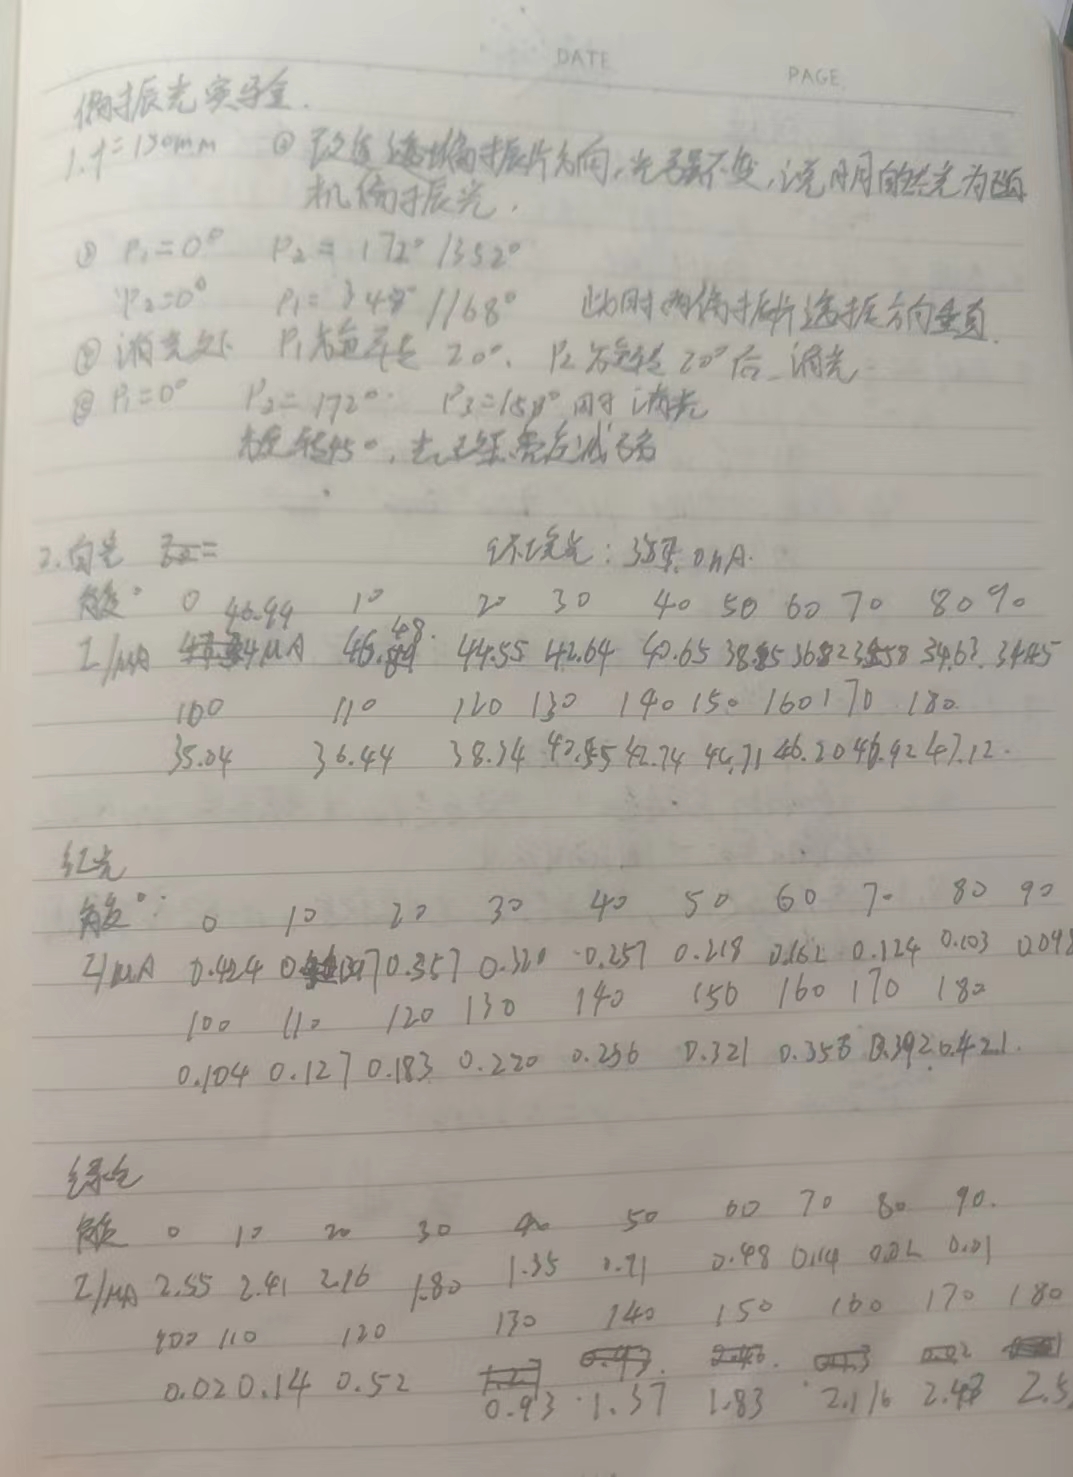 DATE
PAGE
偏振光实验.
1. f=150mm ① 改变透振偏振片方向,光强不变,说明自然光为随
机偏振光.
② P₁=0° P₂=172°/352°
P₂=0° P₁=348°/168° 此时两偏振片透振方向垂直.
消光处 P₁旋转20°. P₂旋转20°后 消光.
P₁=0° P₂=172° P₃=158°时消光
旋转45°,光
2.白光 环境光: nA.
角度° 0 10 20 30 40 50 60 70 80 90
I/μA 46.94 46.48 44.55 42.64 40.65 38.85 36.82 35.58 34.63 34.45
100 110 120 130 140 150 160 170 180
35.04 36.44 38.34 42.74 44.71 46.20 46.92 47.12.
红光
角度°: 0 10 20 30 40 50 60 70 80 90
I/μA 0.424 0.397 0.357 0.320 0.257 0.218 0.162 0.124 0.103 0.098
100 110 120 130 140 150 160 170 180
0.104 0.127 0.183 0.220 0.256 0.321 0.356 0.392 0.421.
绿光
角度 0 10 20 30 40 50 60 70 80 90.
I/μA 2.55 2.41 2.16 1.80 1.35 0.91 0.48 0.14 0.02 0.01
100 110 120 130 140 150 160 170 180
0.02 0.14 0.52 0.93 1.37 1.83 2.16 2.43